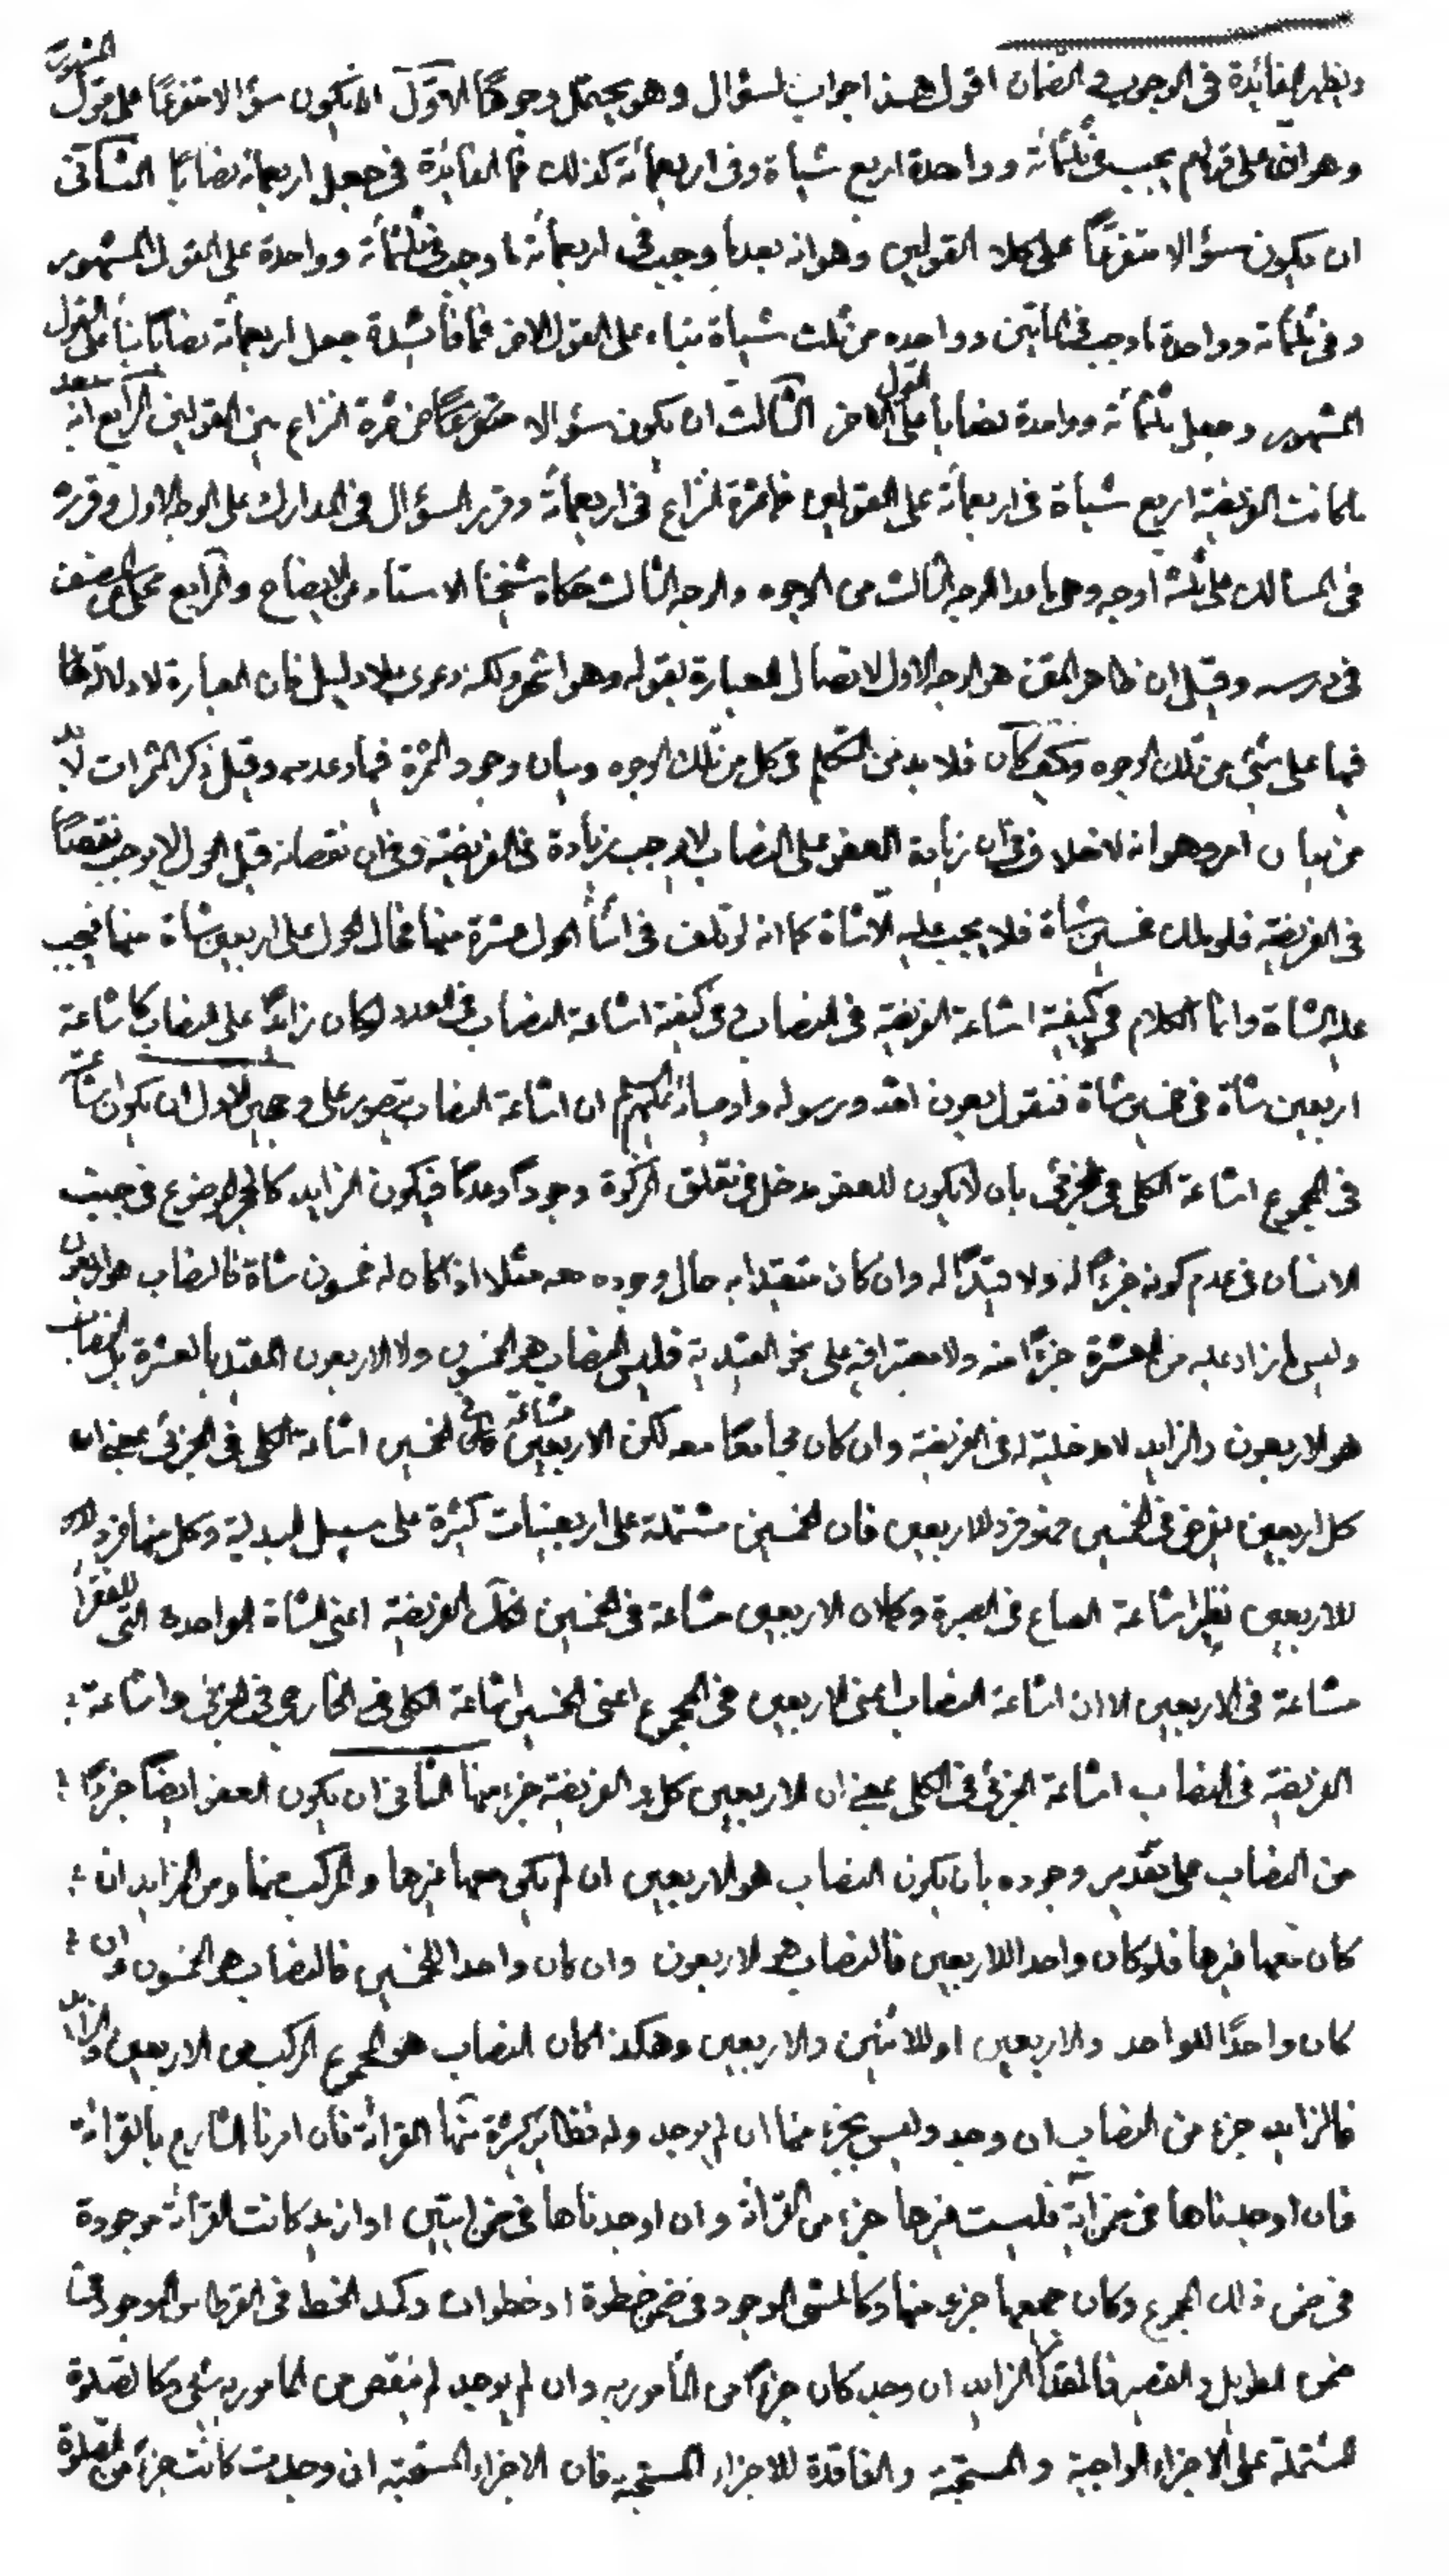 ويظهر الفائدة في الوجوب وفي الضمان اقول هذا جواب لسؤال وهو يحتمل وجوها الاول ان يكون سؤالا متفرعا على قول المشهور
وهو ان على قولهم يجب في ثلثمأة وواحدة اربع شياة وفي اربعمأة كذلك فما الفائدة في جعل اربعمأة نصابا الثاني
ان يكون سؤالا متفرعا على كلا القولين وهو انه بعد ما وجب في اربعمأة ما وجب في ثلثمأة وواحدة على القول المشهور
وفي ثلثمأة وواحدة ما وجب في مأتين وواحدة من ثلث شياة بناء على القول الاخر فما فائدة جعل اربعمأة نصابا بناء على القول
المشهور وجعل ثلثمأة وواحدة نصابا على القول الاخر الثالث ان يكون سؤالا متفرعا عن ثمرة النزاع بين القولين الرابع انه بعد
ما كانت الفريضة اربع شياة في اربعمأة على القولين فما ثمرة النزاع في اربعمأة وقرر السؤال في المدارك على الوجه الاول وقرره
في المسالك على ثلثة اوجه وهي ما عدا الوجه الثالث من الوجوه والوجه الثالث حكاه شيخنا الاستاد عن الايضاح والرابع محكي عن المصنف
في درسه وقيل ان ظاهر المتن هو الوجه الاول لاتصال العبارة بقوله وهو اشهر ولكنه دعوى بلا دليل فان العبارة لا دلالة لها
فيها على شئ من تلك الوجوه وكيف كان فلا بد من التكلم في كل من تلك الوجوه وبيان وجود الثمرة فيها وعدمه وقبل ذكر الثمرات لا بد
من بيان امر وهو انه لا خلاف في ان زيادة العفو على النصاب لا يوجب زيادة في الفريضة وفي ان نقصانه قبل الحول لا يوجب نقصا
في الفريضة فلو ملك خمسين شاة فلا يجب عليه الا شاة كما انه لو تلف في اثناء الحول عشرة منها فحال الحول على اربعين شاة منها فيجب
عليه الشاة وانما الكلام في كيفية اشاعة الفريضة في النصاب وفي كيفية اشاعة النصاب في العدد لو كان زائدا على النصاب كاشاعة
اربعين شاة في خمسين شاة فنقول بعون الله ورسوله واوصيائه ان اشاعة النصاب يتصور على وجهين الاول ان يكون اشاعته
في المجموع اشاعة الكلي في الجزئي بان لا يكون للعفو مدخل في تعلق الزكوة وجودا وعدما فيكون الزايد كالحجر الموضوع في جنب
الانسان في عدم كونه جزءا له ولا قيدا له وان كان متقيدا به حال وجوده معه مثلا اذا كان له خمسون شاة فالنصاب هو اربعون
وليس ما زاد عليه من العشرة جزءا منه ولا معتبرا فيه على نحو القيدية فليس النصاب هو الخمسون ولا الاربعون المقيد بالعشرة بل النصاب
هو الاربعون والزايد لا مدخلية له في الفريضة وان كان مجامعا معه لكن الاربعين مشاعة في الخمسين اشاعة الكلي في الجزئي بمعنى ان
كل اربعين يفرض في الخمسين فهو فرد للاربعين فان الخمسين مشتملة على اربعينات كثيرة على سبيل البدلية وكل منها فرد
للاربعين نظير اشاعة الصاع في الصبرة وكما ان الاربعين مشاعة في الخمسين فكذلك الفريضة اعني الشاة الواحدة التي للفقراء
مشاعة في الاربعين الا ان اشاعة النصاب اعني الاربعين في المجموع اعني الخمسين اشاعة الكلي في الخارجي في الجزئي واشاعة
الفريضة في النصاب اشاعة الجزئي في الكلي بمعنى ان الاربعين كل والفريضة جزء منها الثاني ان يكون العفو ايضا جزءا
من النصاب على تقدير وجوده بان يكون النصاب هو الاربعين ان لم يكن معها غيرها والمركب منها ومن الزايد ان
كان معها غيرها فلو كان واجدا للاربعين فالنصاب هو الاربعون وان كان واجدا للخمسين فالنصاب هو الخمسون وان
كان واجدا للواحد والاربعين او للاثنين والاربعين وهكذا كان النصاب هو المجموع المركب من الاربعين والزايد
فالزايد جزء من النصاب ان وجد وليس بجزء منها ان لم يوجد وله نظاير كثيرة منها القرائة فان امرنا الشارع بالقرائة
فان اوجدناها في ضمن اية فليست غيرها جزء من القرائة وان اوجدناها في ضمن ايتين او ازيد كانت القرائة موجودة
في ضمن ذلك المجموع وكان جميعها جزء منها وكالمشي الموجود في ضمن خطوة او خطوات وكمد الخط في القرطاس الموجود في
ضمن الطويل والقصير فالمقدار الزايد ان وجد كان جزءا من المأمور به وان لم يوجد لم ينقص من المأمور به شئ وكالصلوة
المشتملة على الاجزاء الواجبة والمستحبة والفاقدة للاجزاء المستحبة فان الاجزاء المستحبة ان وجدت كانت جزءا من الصلوة